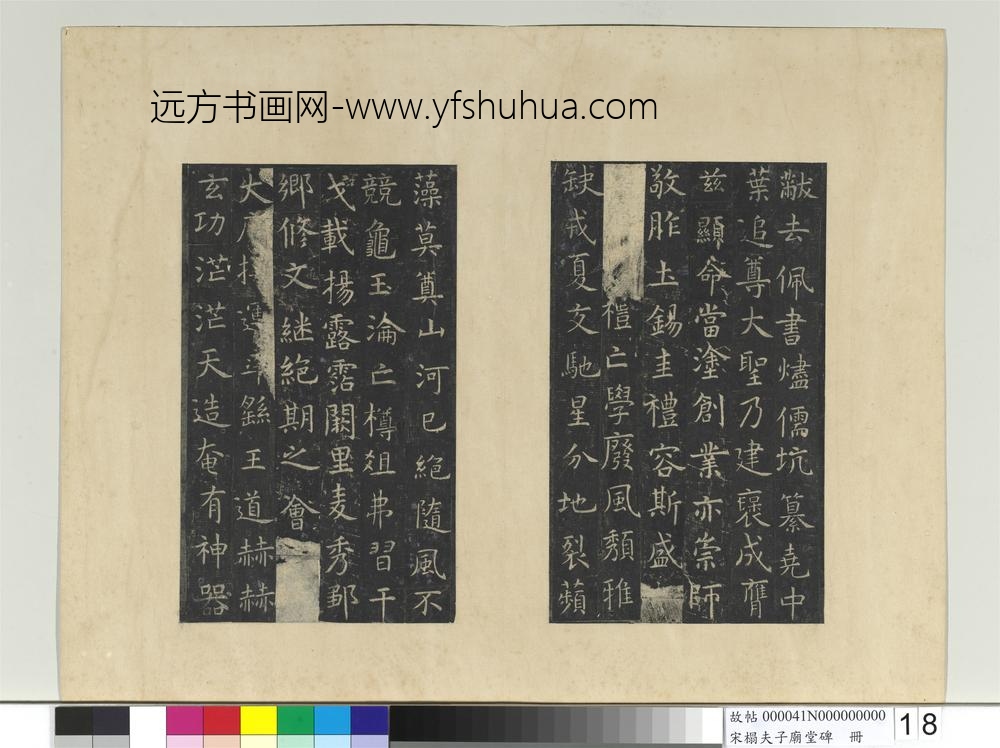 远方书画网-www.yfshuhua.com
黻去佩書燼儒坑纂堯中
葉追尊大聖乃建褒成膺
茲顯命當塗創業亦崇師
敬胙土錫圭禮容斯盛
愷亡學廢風頹雅
缺戎夏交馳星分地裂蘋
藻莫奠山河已絕隨風不
競龜玉淪亡樽俎弗習干
戈載揚露霑闕里麦秀鄒
鄉修文継絕期之會
大運斗繇王道赫赫
玄功茫茫天造奄有神器
故帖 000041N000000000
宋榻夫子廟堂碑 冊
18